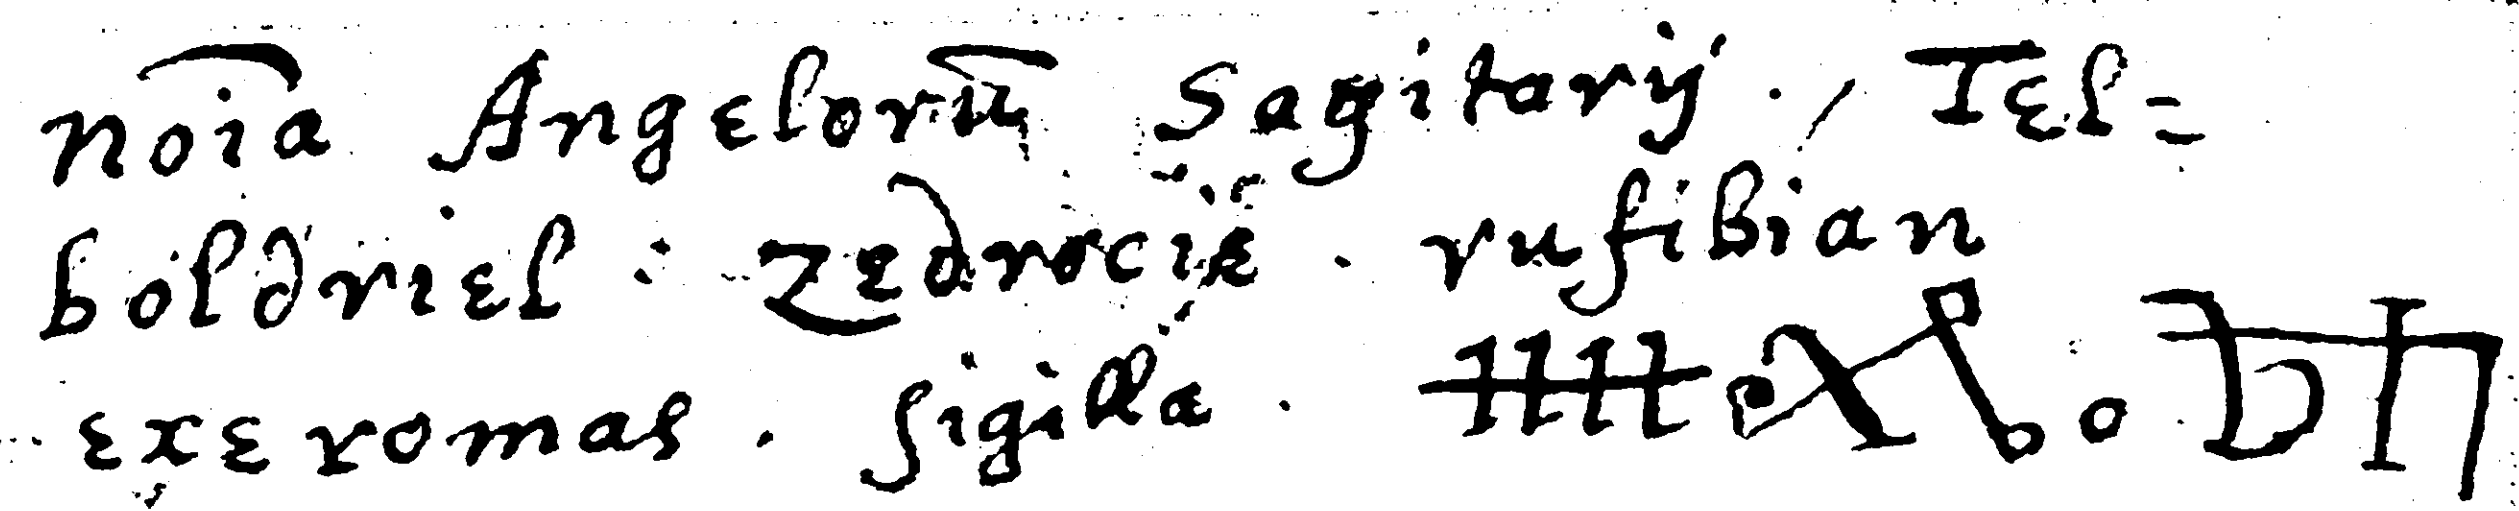 noîa Angelorū Sagitarij ., Tel=
boldriel : Zedrocie . rufibian
exeromas . sigilla .